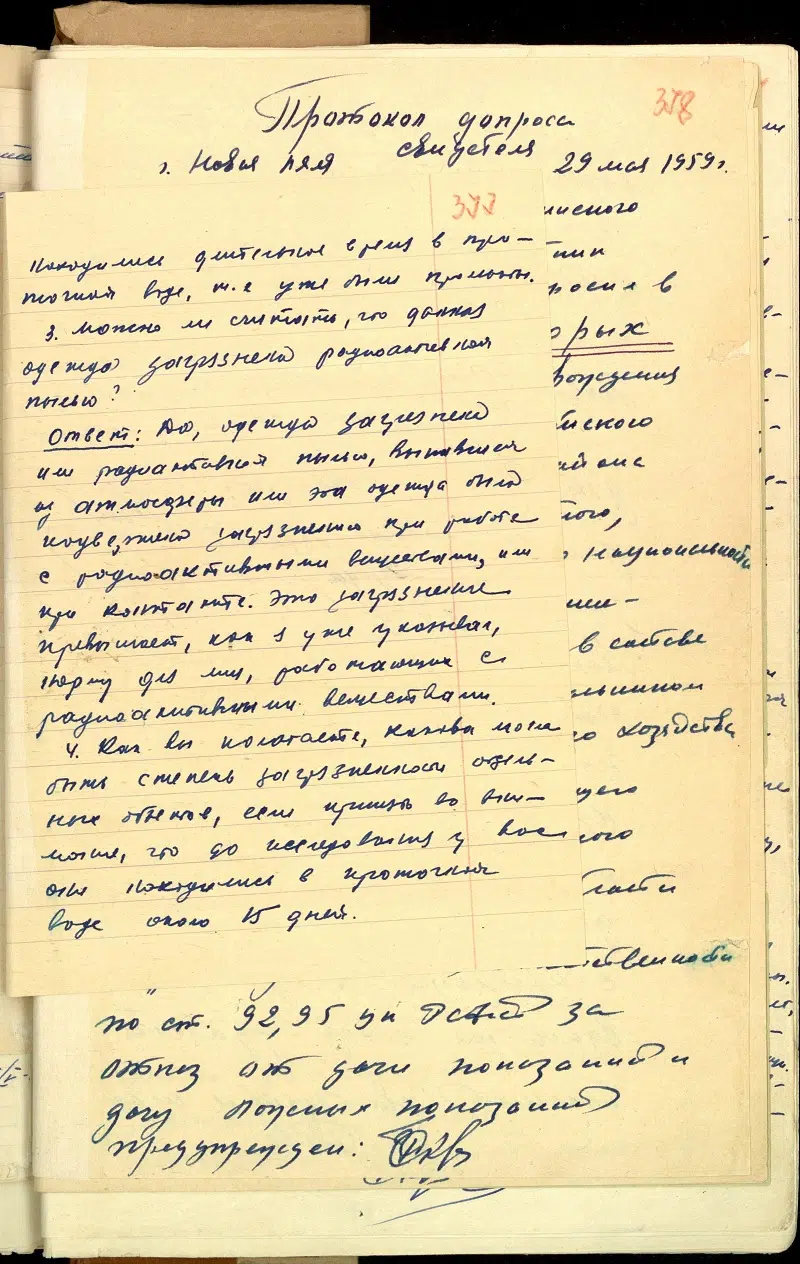 Протокол допроса
358
свидетеля
г. Новая Ляля
29 мая 1959 г.
377
находились длительное время в про-
точной воде, т.е. уже были промыты.
3. Можно ли считать, что данная
одежда загрязнена радиоактивной
пылью?
Ответ: Да, одежда загрязнена
или радиоактивной пылью, выпавшей
из атмосферы или эта одежда была
подвержена загрязнению при работе
с радиоактивными веществами, или
при контакте. Это загрязнение
превышает, как я уже указывал,
норму для лиц, работающих с
радиоактивными веществами.
4. Как вы полагаете, какова могла
быть степень загрязненности отдель-
ных объектов, если принять во вни-
мание, что до исследования у вас
они находились в проточной
воде около 15 дней.
нского
росил в
орых
рождения
йского
района
национальности
в составе
хозяйства
щего
ного
ласти
тственности
по ст. 92, 95 УК РСФСР за
отказ от дачи показаний и
дачу ложных показаний
предупрежден: